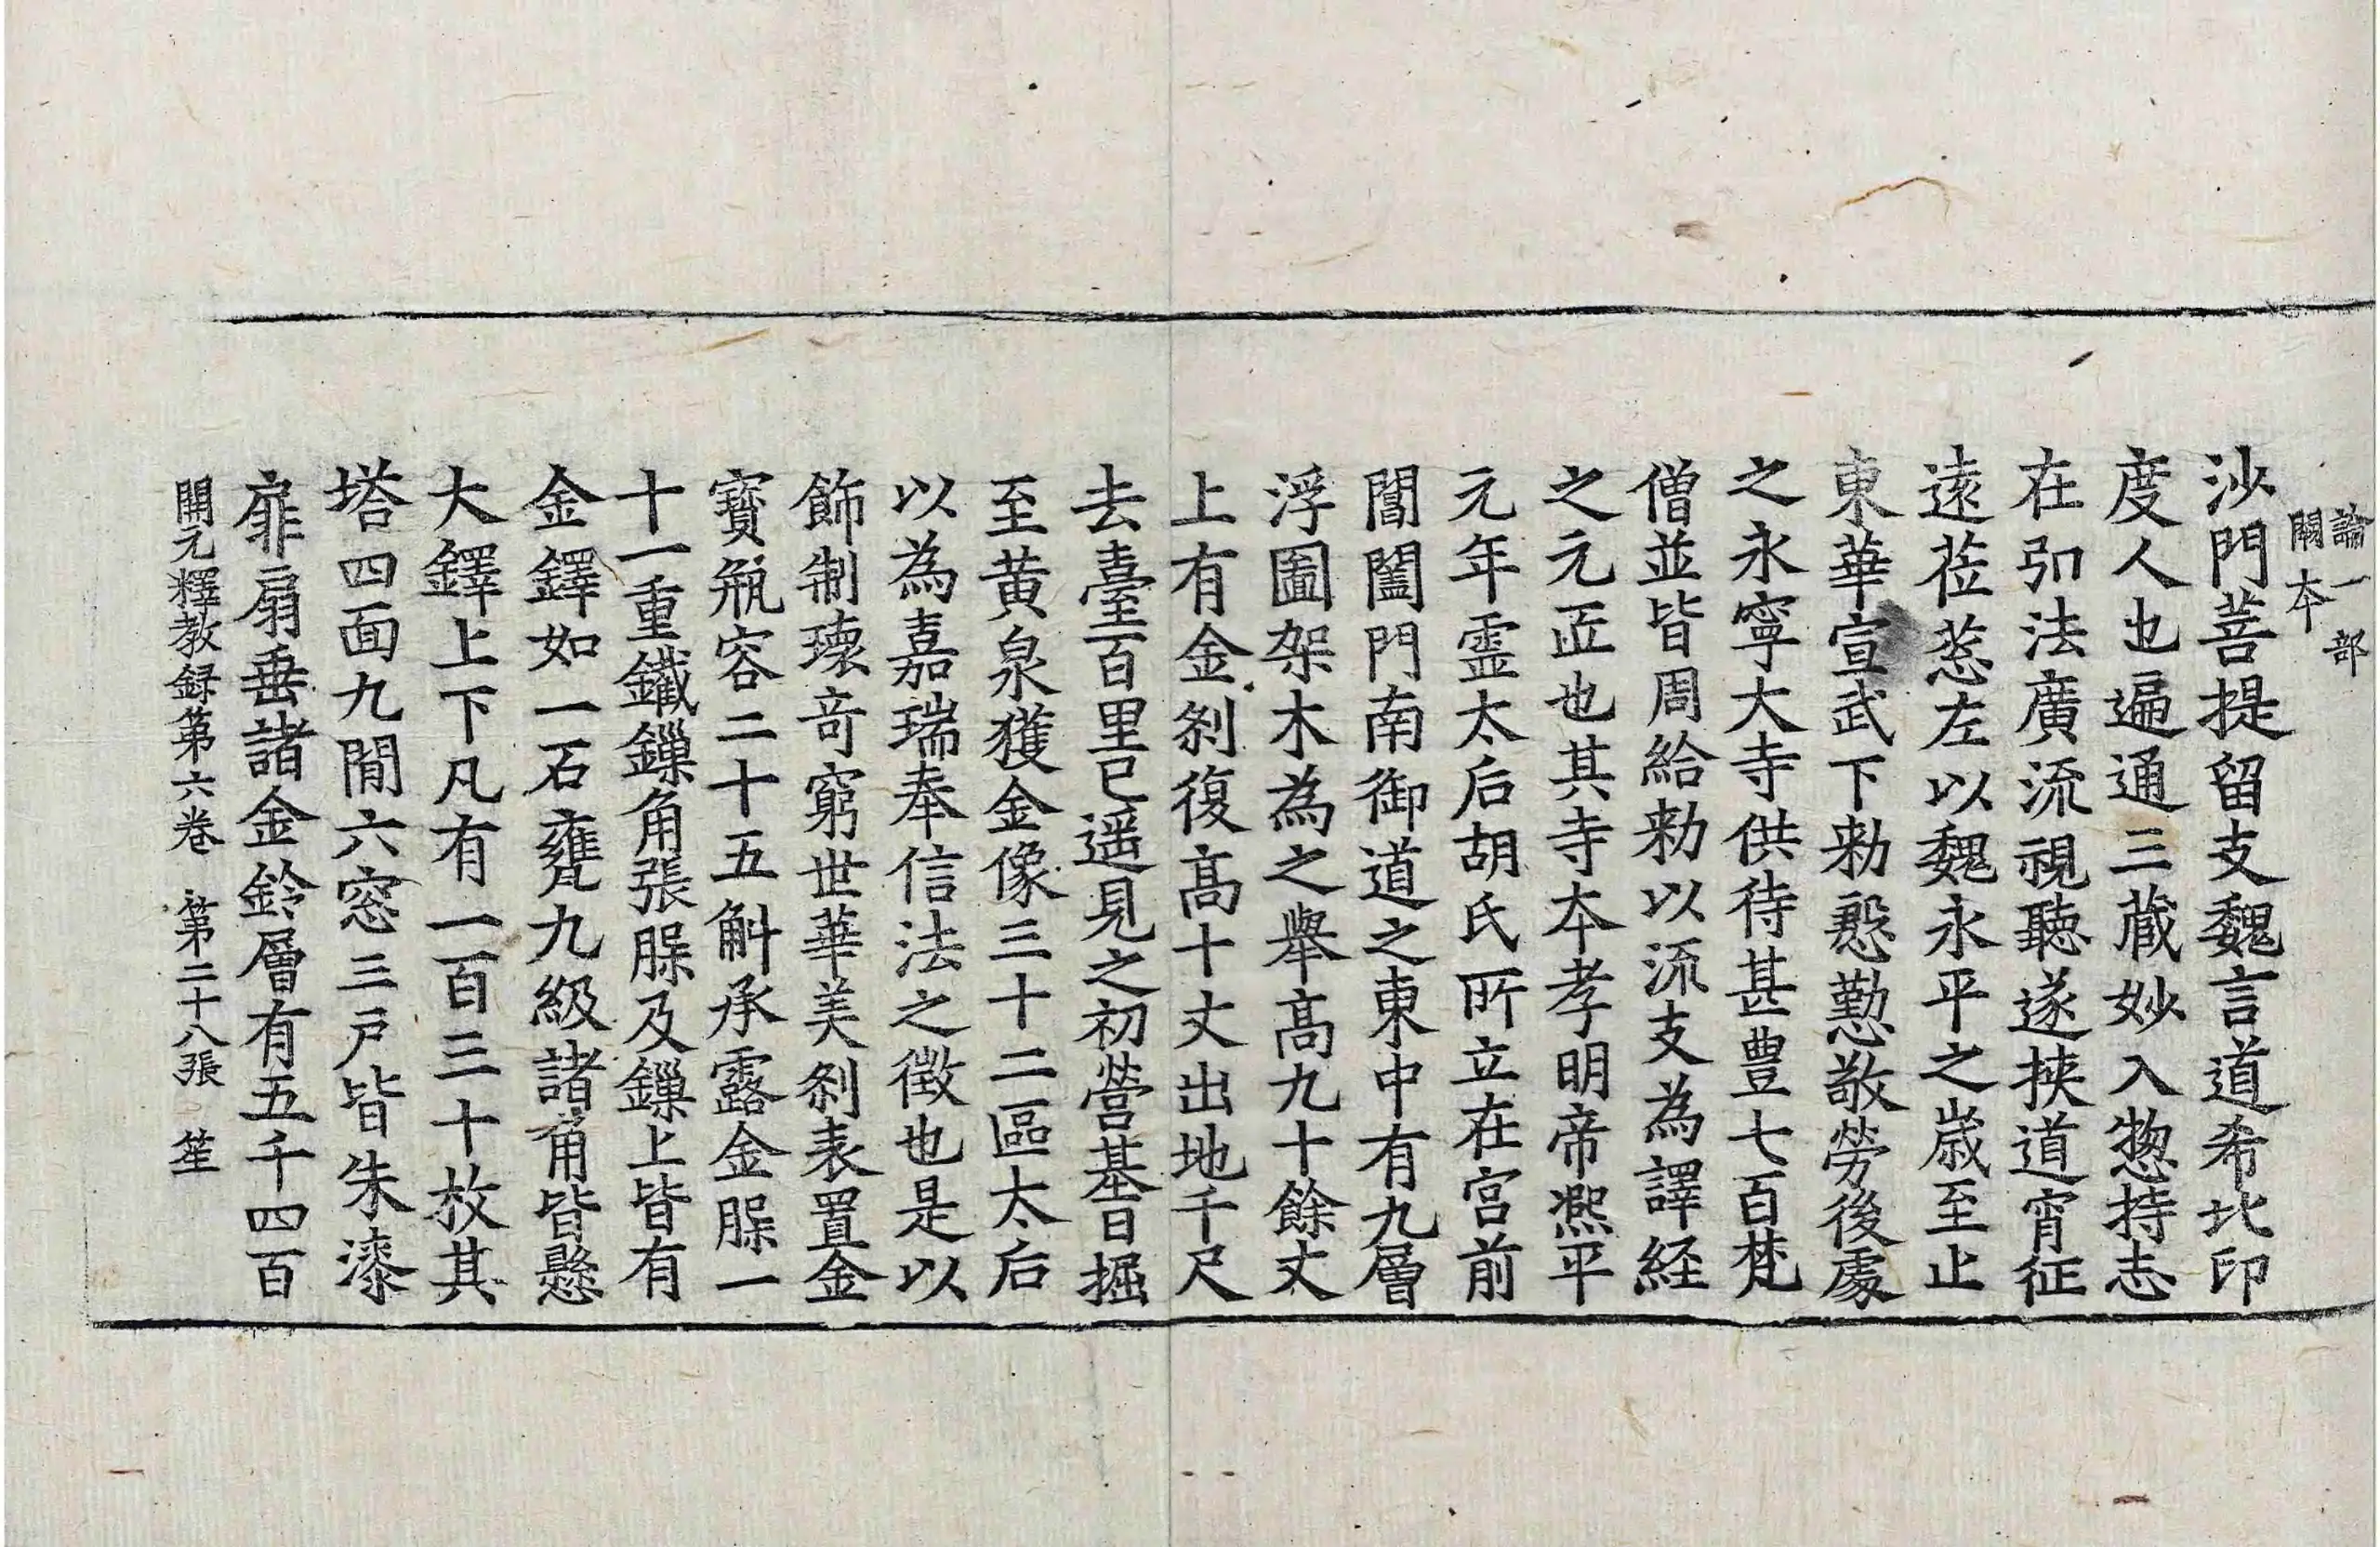 論一部
闕本
沙門菩提留支魏言道希北印
度人也遍通三藏妙入惣持志
在弘法廣流視聽遂挾道宵征
遠莅葱左以魏永平之歲至止
東華宣武下勑慇懃敬勞後處
之永寧大寺供待甚豊七百梵
僧並皆周給勑以流支為譯経
之元匠也其寺本孝明帝熈平
元年霊太后胡氏所立在宮前
閶闔門南御道之東中有九層
浮圖架木為之舉高九十餘丈
上有金剎復高十丈出地千尺
去臺百里已遥見之初營基日掘
至黄泉獲金像三十二區太后
以為嘉瑞奉信法之徵也是以
飾制瓌竒窮世華美剎表置金
寶瓶容二十五斛承露金䐑一
十一重鐵鏁角張䐑及鏁上皆有
金鐸如一石甕九級諸角皆懸
大鐸上下凡有一百三十枚其
塔四面九閒六窓三戸皆朱漆
扉扇垂諸金鈴層有五千四百
開元釋教録第六卷　第二十八張　笙